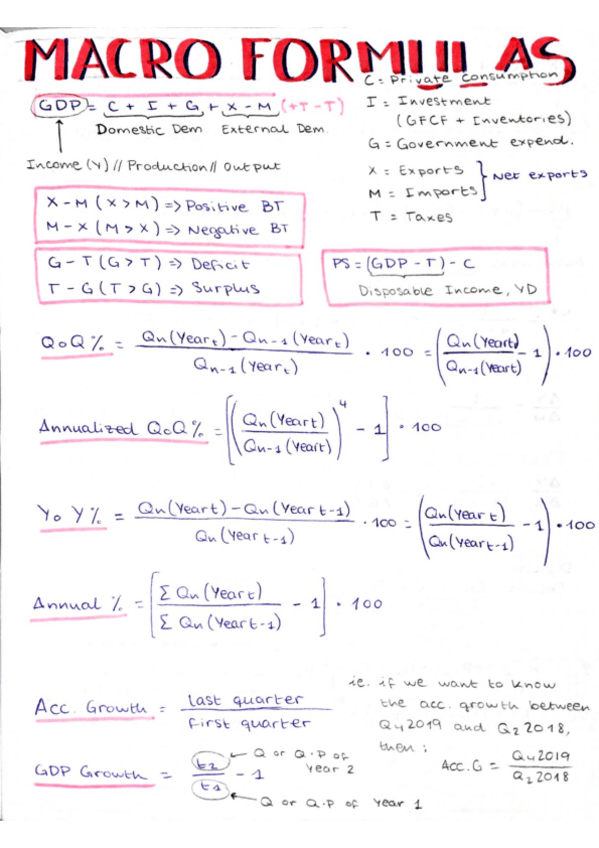 MACRO FORMULAS
C = Private Consumption
GDP = C + I + G + X - M (+T-T)
Domestic Dem. External Dem.
Income (Y) // Production // Output
I = Investment
(GFCF + Inventories)
G = Government expend.
X = Exports
M = Imports
Net exports
T = Taxes
X - M (X > M) => Positive BT
M - X (M > X) => Negative BT
G - T (G > T) => Deficit
T - G (T > G) => Surplus
PS = (GDP - T) - C
Disposable Income, YD
QoQ% = (Qn(Year t) - Qn-1(Year t)) / Qn-1(Year t) · 100 = (Qn(Year t) / Qn-1(Year t) - 1) · 100
Annualized QoQ% = [(Qn(Year t) / Qn-1(Year t))^4 - 1] · 100
YoY% = (Qn(Year t) - Qn(Year t-1)) / Qn(Year t-1) · 100 = (Qn(Year t) / Qn(Year t-1) - 1) · 100
Annual % = [Σ Qn(Year t) / Σ Qn(Year t-1) - 1] · 100
Acc. Growth = last quarter / first quarter
ie. if we want to know
the acc. growth between
Q4 2019 and Q2 2018,
then:
Acc.G = Q4 2019 / Q2 2018
GDP Growth = t2 / t1 - 1
Q or Q.P of year 2
Q or Q.P of Year 1